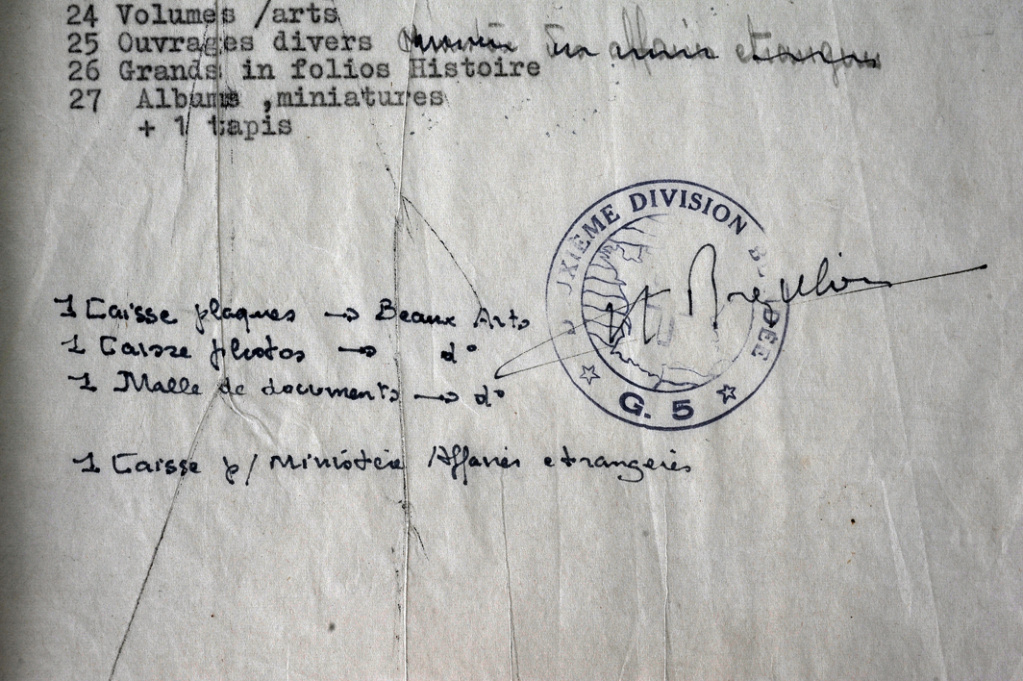 24 Volumes /arts
25 Ouvrages divers
26 Grands in folios Histoire
27 Albums ,miniatures
+ 1 tapis
UXIÈME DIVISION B DÉE
G. 5
1 Caisse plaques → Beaux Arts
1 Caisse photos → d°
1 Malle de documents → d°
1 Caisse p/ Ministère Affaires etrangères